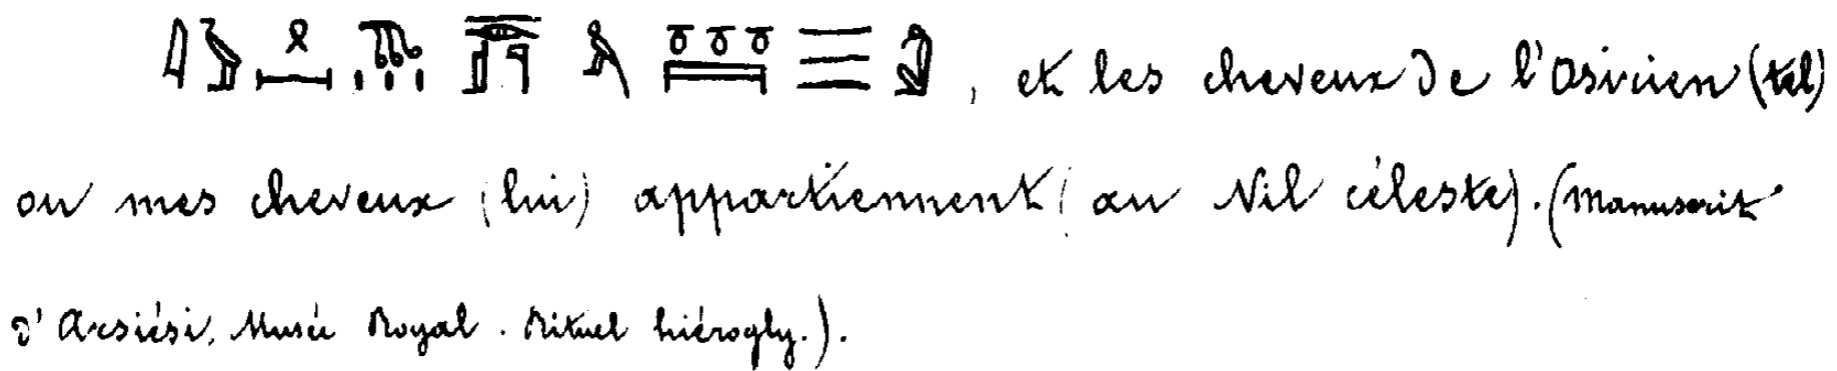 , et les cheveux de l'Osirien (tel)
ou mes cheveux (lui) appartiennent (au Nil céleste). (Manuscrit
d'Arsiési, Musée Royal. Rituel hiérogly.).